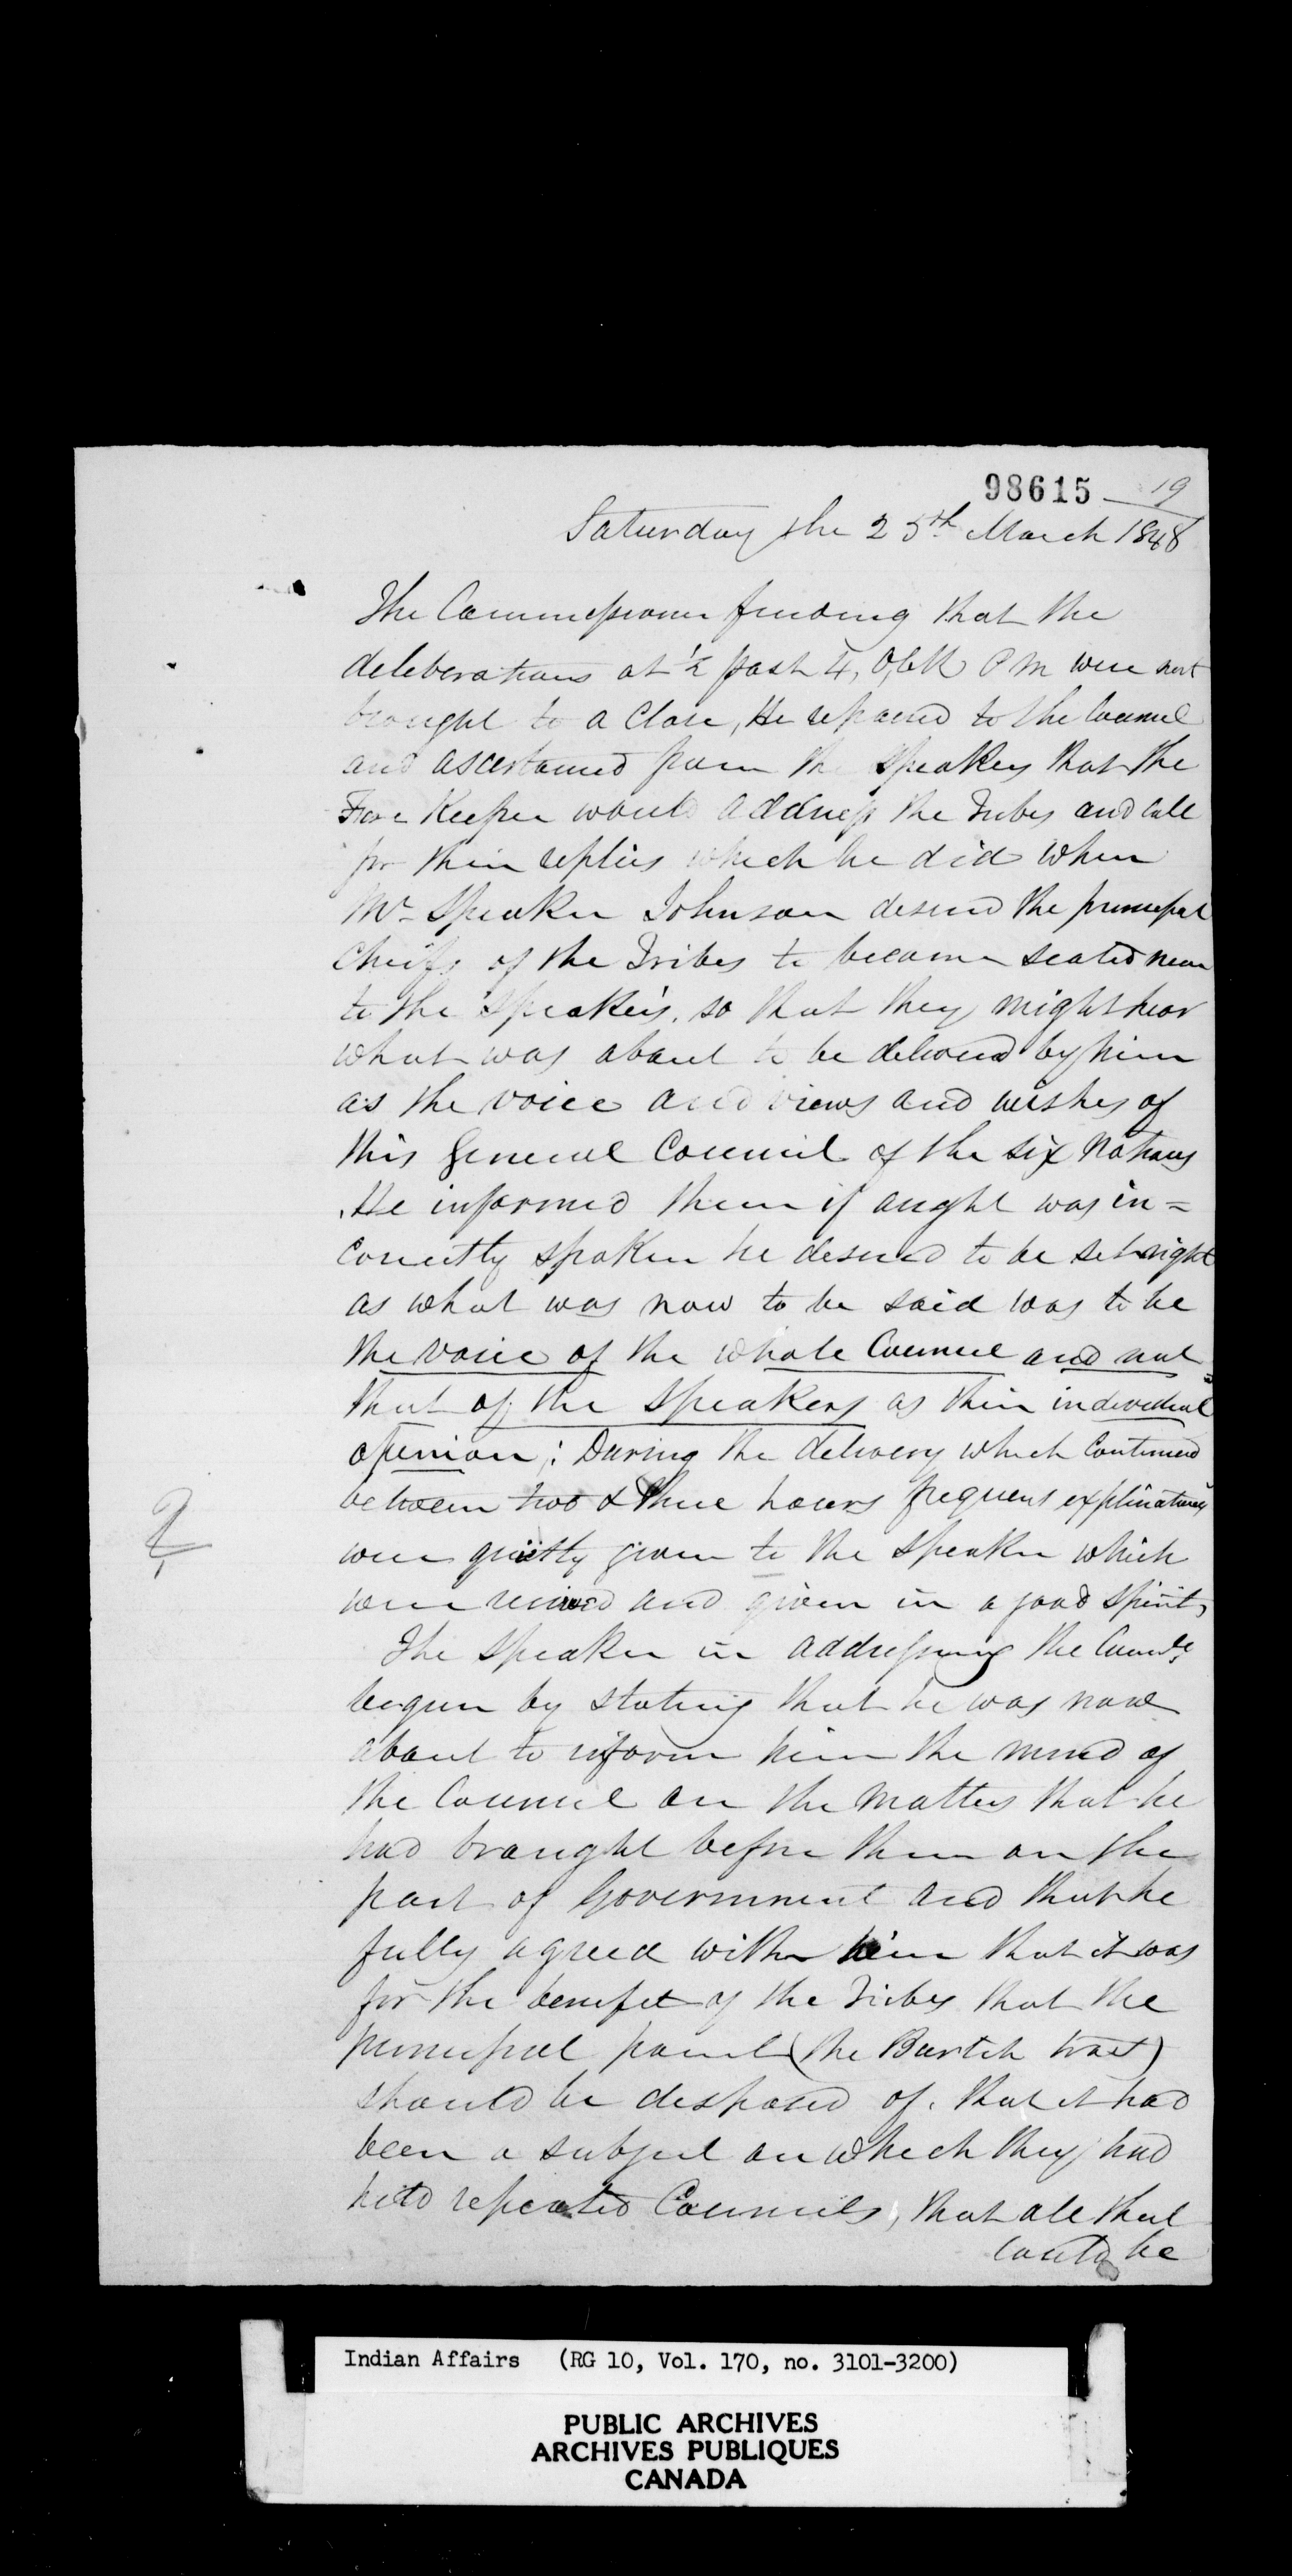 98615 19
Saturday the 25th March 1848
The Commissioner finding that the
deleberations at ½ past 4, O,Clk P M were not
brought to a Close, He repaired to the Council
and ascertained from the Speakers that the
Fire Keeper would address the Tribes and call
for their replies which he did when
Mr Speaker Johnson desired the principal
Cheifs of the Tribes to become seated near
to the Speakers, so that they might hear
what was about to be delivered by him
as the voice and views and wishes of
this General Council of the Six Nations
He informed them if aught was in=
correctly spoken he desired to be set right
as what was now to be said was to be
the voice of the whole Council and not
that of the Speakers as their individual
opinion; During the delivery which Continued
between two & three hours frequent explinations
were quietly given to the Speaker which
were received and given in a good Spirit,
The Speaker in addressing the
begun by stating that he was now
about to inform him the mind of
the Council on the matters that he
had brought before them on the
part of Government and that he
fully agreed with him that it was
for the benefit of the Tribes that the
principal parcel (the Burtch tract)
should be disposed of. that it had
been a subject on which they had
held repeated Councils, that all that
could be
Indian Affairs (RG 10, Vol. 170, no. 3101-3200)
PUBLIC ARCHIVES
ARCHIVES PUBLIQUES
CANADA